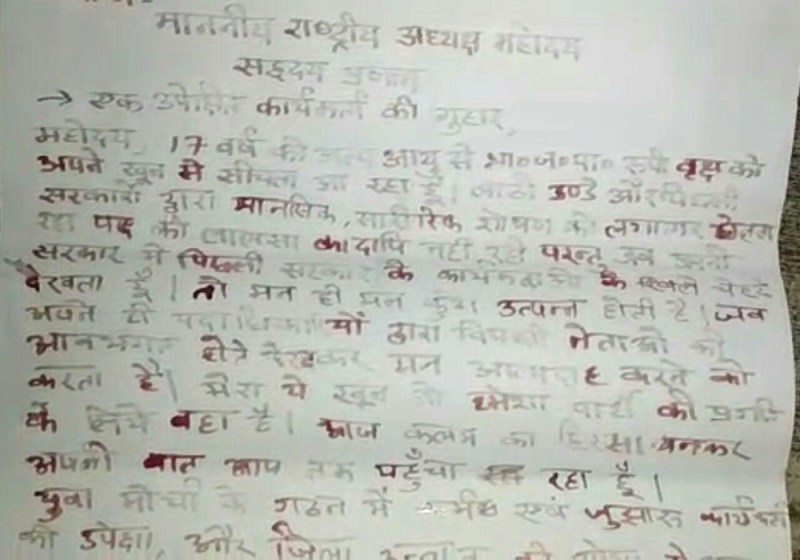 माननीय राष्ट्रीय अध्यक्ष महोदय
सहृदय प्रणाम
→ एक उपेक्षित कार्यकर्ता की गुहार,
महोदय, 17 वर्ष की अल्प आयु से भा०ज०पा० रूपी वृक्ष को
अपने खून से सींचता आ रहा हूँ। लाठी डण्डे और पिछली
सरकारों द्वारा मानसिक, शारीरिक शोषण को लगातार झेलता
रहा पद की लालसा कदापि नहीं रही परन्तु जब अपनी
सरकार में पिछली सरकार के कार्यकर्ताओं के खिले चेहरे
देखता हूँ। तो मन ही मन कुंठा उत्पन्न होती है। जब
अपने ही पदाधिकारियों द्वारा विपक्षी नेताओं की
आवभगत होते देखकर मन आत्मदाह करने को
करता है। मेरा ये खून तो हमेशा पार्टी की प्रगति
के लिये बहा है। आज कलम का हिस्सा बनकर
अपनी बात आप तक पहुँचा रहा हूँ।
युवा मोर्चा के गठन में कर्मठ एवं जुझारू कार्यकर्ता
की उपेक्षा, और जिला